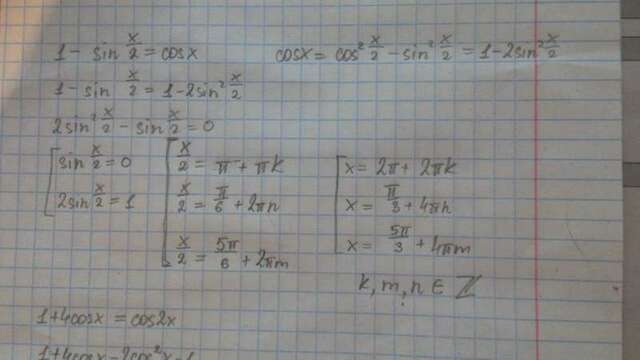 1 - sin x/2 = cosx
cosx = cos² x/2 - sin² x/2 = 1 - 2sin² x/2
1 - sin x/2 = 1 - 2sin² x/2
2sin² x/2 - sin x/2 = 0
[ sin x/2 = 0
2sin x/2 = 1
[ x/2 = π + πk
x/2 = π/6 + 2πn
x/2 = 5π/6 + 2πm
[ x = 2π + 2πk
x = π/3 + 4πn
x = 5π/3 + 4πm
k, m, n ∈ ℤ
1 + 4cosx = cos2x
1 + 4cosx = 2cos²x - 1